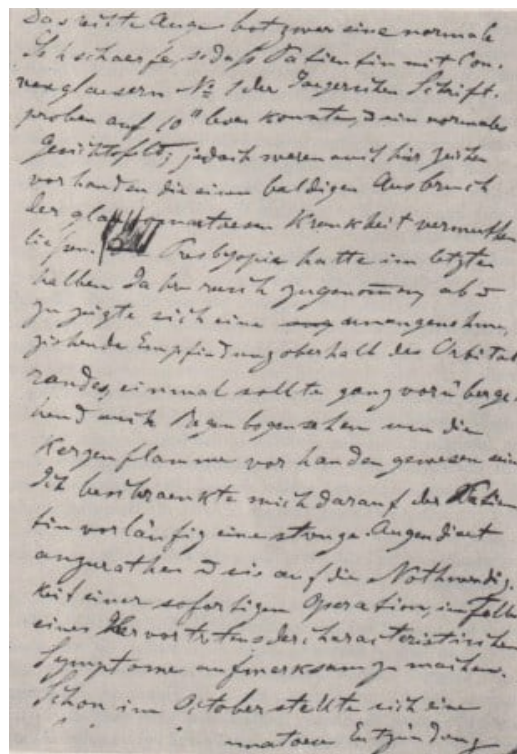 Das rechte Auge bot zwar eine normale
Sehschaerfe, sodass Patientin mit Con-
vexglaesern No 1 der Jaegerschen Schrift-
proben auf 10" lesen konnte, & ein normales
Gesichtsfeld; jedoch waren auch hier Zeichen
vorhanden die einen baldigen Ausbruch
der glaucomatoesen Krankheit vermuthen
liessen. Presbyopie hatte im letzten
halben Jahr rasch zugenommen, ab &
zu zeigte sich eine unangenehme,
ziehende Empfindung oberhalb des Orbital
randes, einmal sollte ganz vorüberge-
hend auch Regenbogensehen um die
Kerzenflamme vorhanden gewesen sein
Ich beschraenkte mich darauf der Patien
tin vorläufig eine strenge Augendiaet
anzurathen & sie auf die Nothwendig-
keit einer sofortigen Operation, im Falle
eines Hervortretens der characteristischen
Symptome aufmerksam zu machen.
Schon im October stellte sich eine
matoese Entzündung